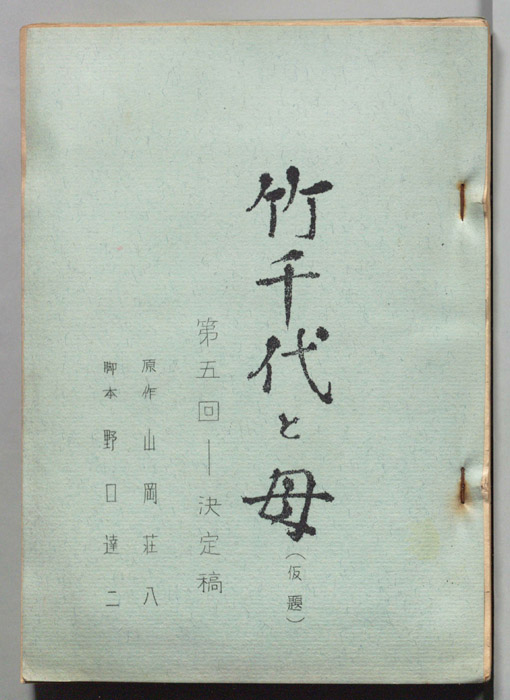 竹千代と母(仮題)
第五回—決定稿
原作 山岡荘八
脚本 野口達二